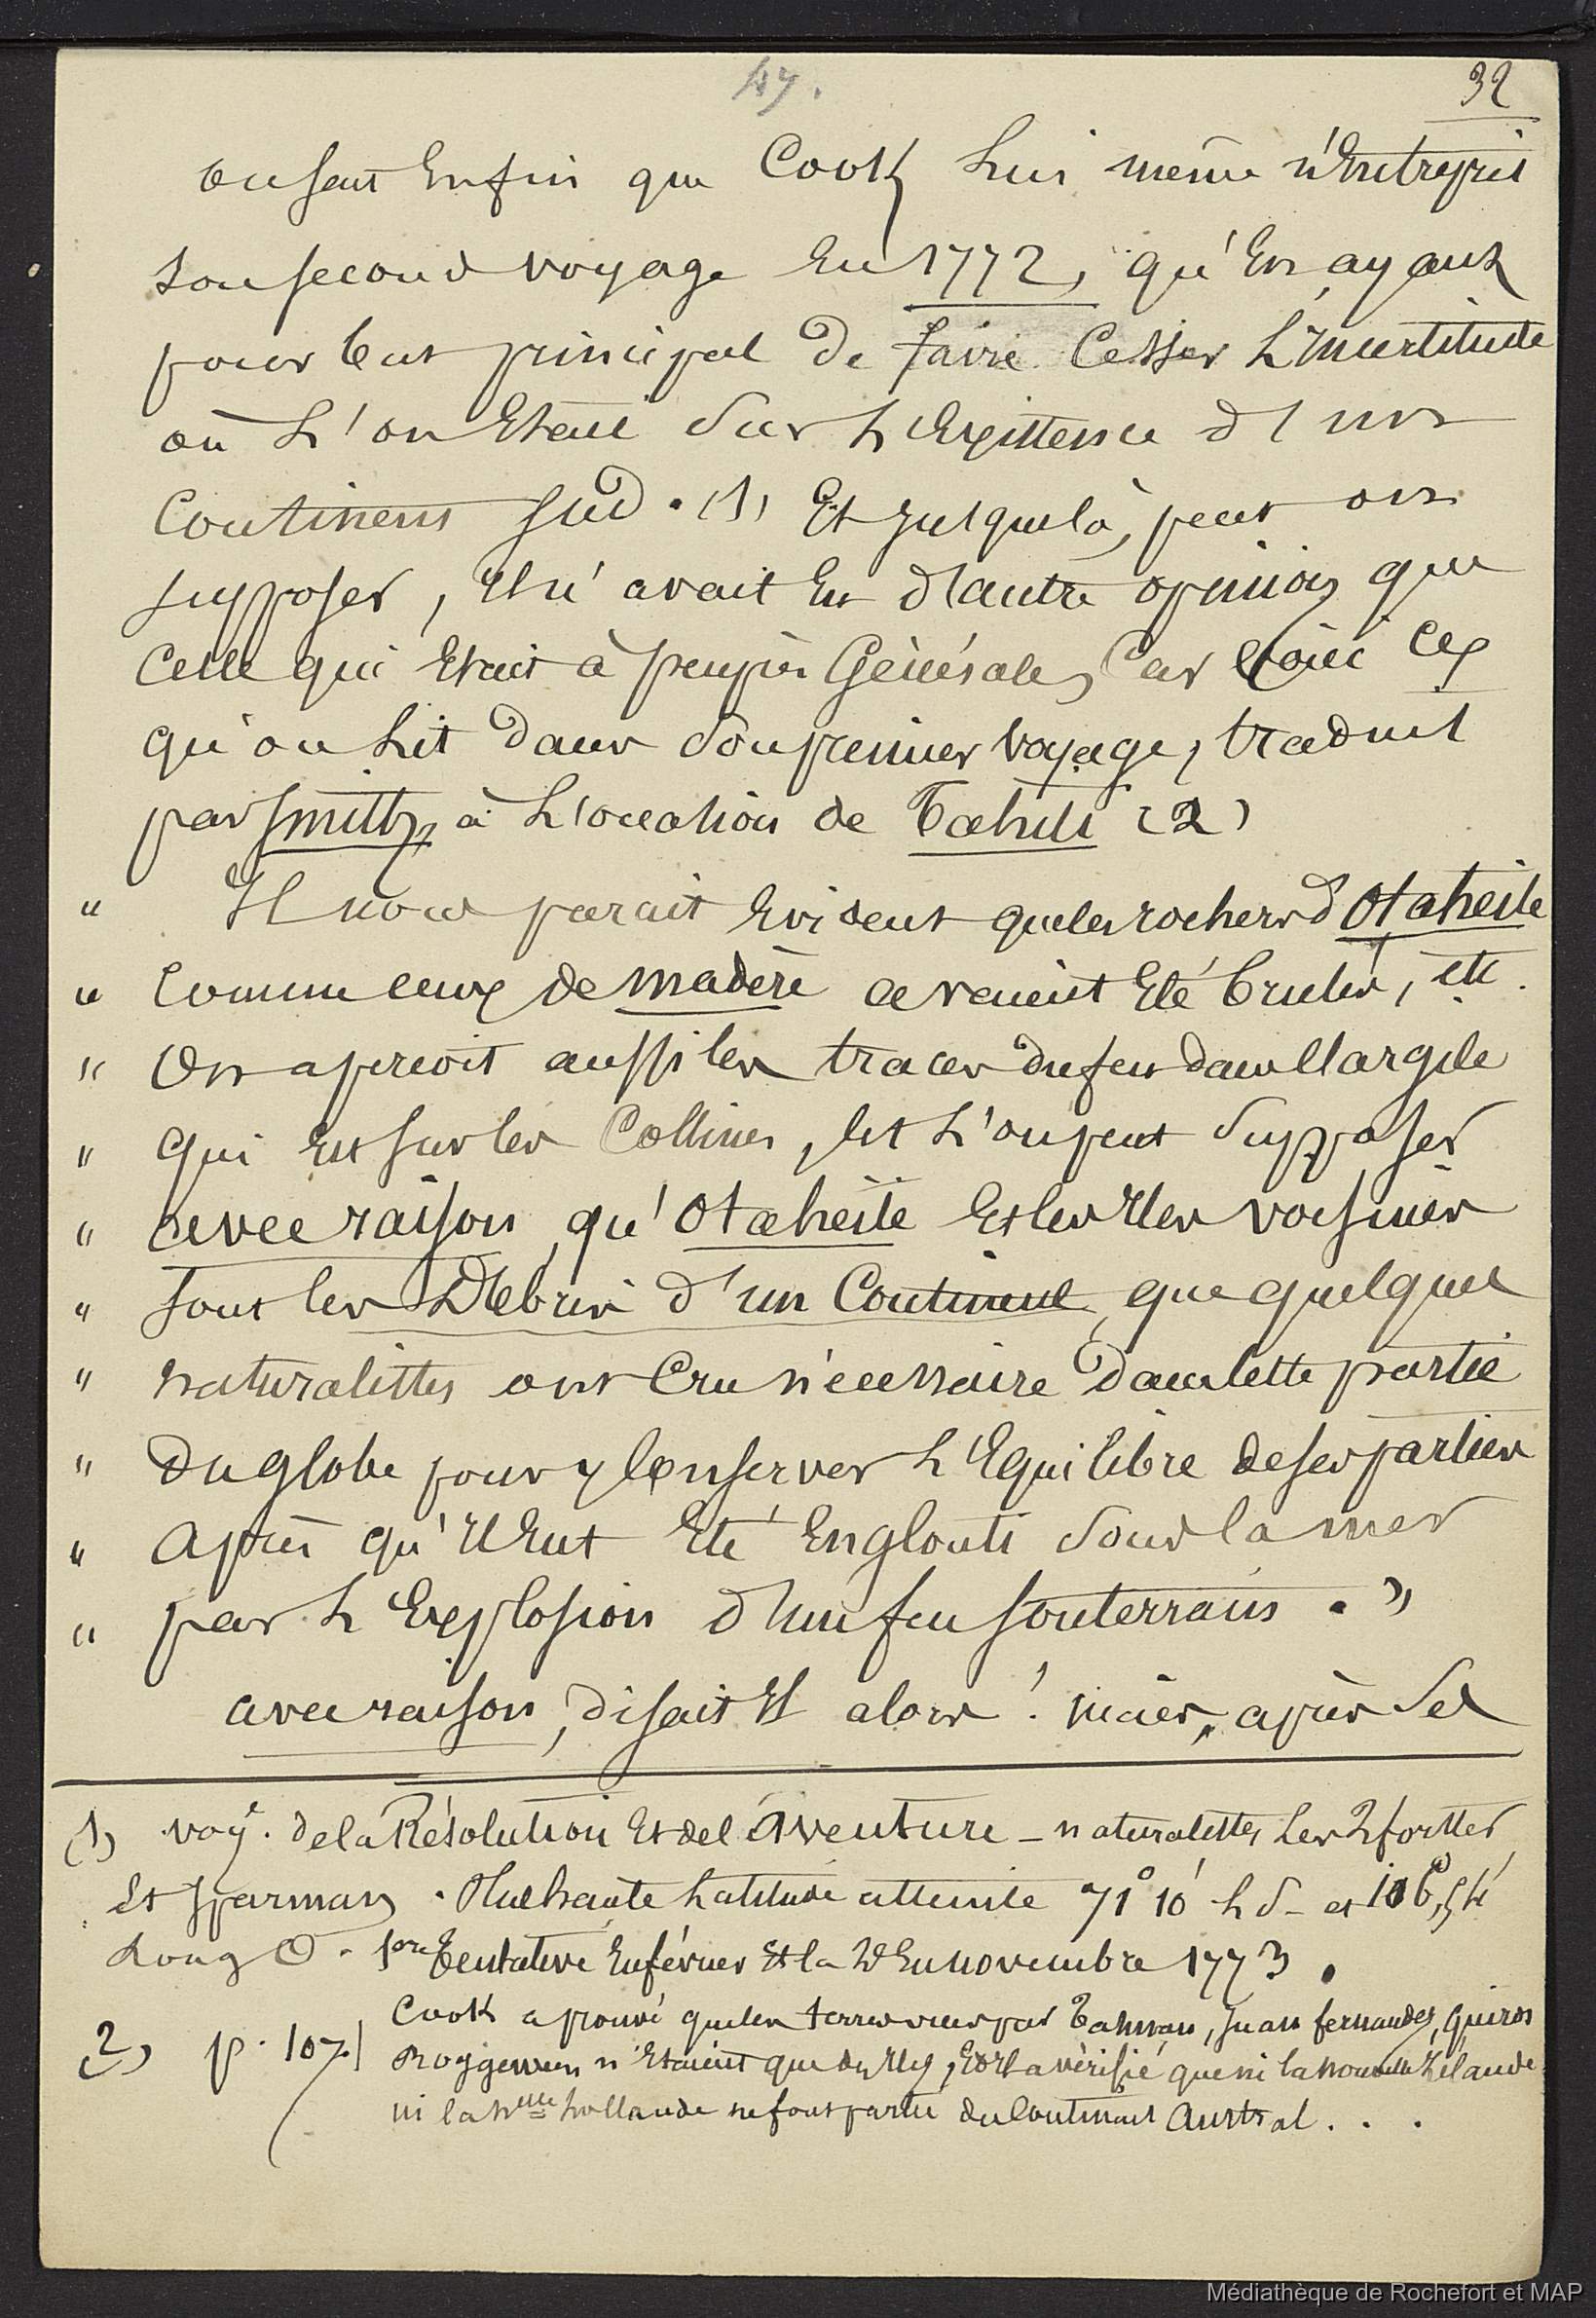 47.
32
on sait enfin que Cook lui même n'entreprit
son second voyage en 1772, qu'en ayant
pour but principal de faire cesser l'incertitude
où l'on était sur l'existence d'un
continent sud. (1) Et jusque là, peut on
supposer, il n'avait eu d'autre opinion que
celle qui était à peu près générale, car voici ce
qu'on lit dans son premier voyage, traduit
par Smith, à l'occasion de Tahiti (2)
" Il nous parait évident que les rochers d'Otaheite
" comme ceux de Madère avaient été brulés, etc.
" On aperçoit aussi les traces du feu dans l'argile
" qui est sur les collines, et l'on peut supposer
" avec raison, qu'Otaheite et les iles voisines
" sont les débris d'un Continent, que quelques
" naturalistes ont cru nécessaire dans cette partie
" du globe pour y conserver l'équilibre de ses parties
" après qu'il eut été englouti sous la mer
" par l'explosion d'un feu souterrain. "
avec raison, disait il alors ! mais, après ses
(1) voyᵉ. de la Résolution et de l'Aventure - naturalistes les 2 forster
et Sparman. Plus haute latitude atteinte 71° 10' l S - et 106°, 54'
Long O. 1ère tentative en février et la 2e en novembre 1773.
(2) p. 107. | Cook a prouvé que les terres vues par Tasman, Juan fernandez, Quiros
Roggeween n'étaient que des iles, et il a vérifié que ni la nouvelle Zélande
ni la nelle hollande ne font partie du continent Austral. . .
Médiathèque de Rochefort et MAP